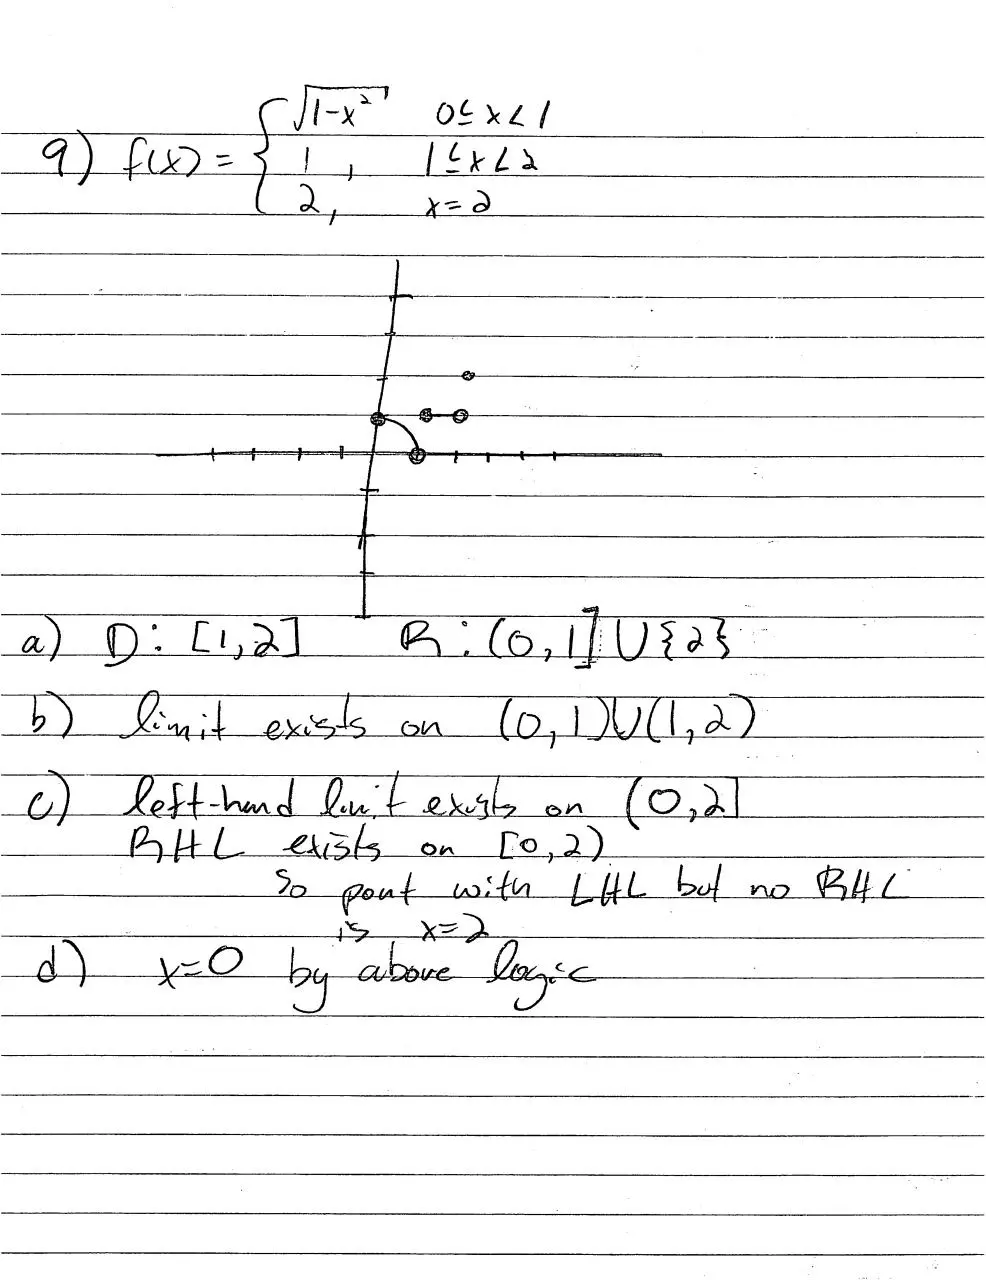 9) f(x) = { √(1-x²) 0≤x<1
1, 1≤x<2
2, x=2
a) D: [1,2] R: (0,1] ∪ {2}
b) limit exists on (0,1)∪(1,2)
c) left-hand limit exists on (0,2]
RHL exists on [0,2)
so pont with LHL but no RHL
is x=2
d) x=0 by above logic